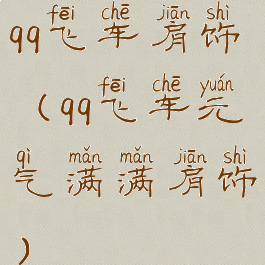 fēi chē jiān shì
qq飞车肩饰
fēi chē yuán
(qq飞车元
qì mǎn mǎn jiān shì
气满满肩饰
)